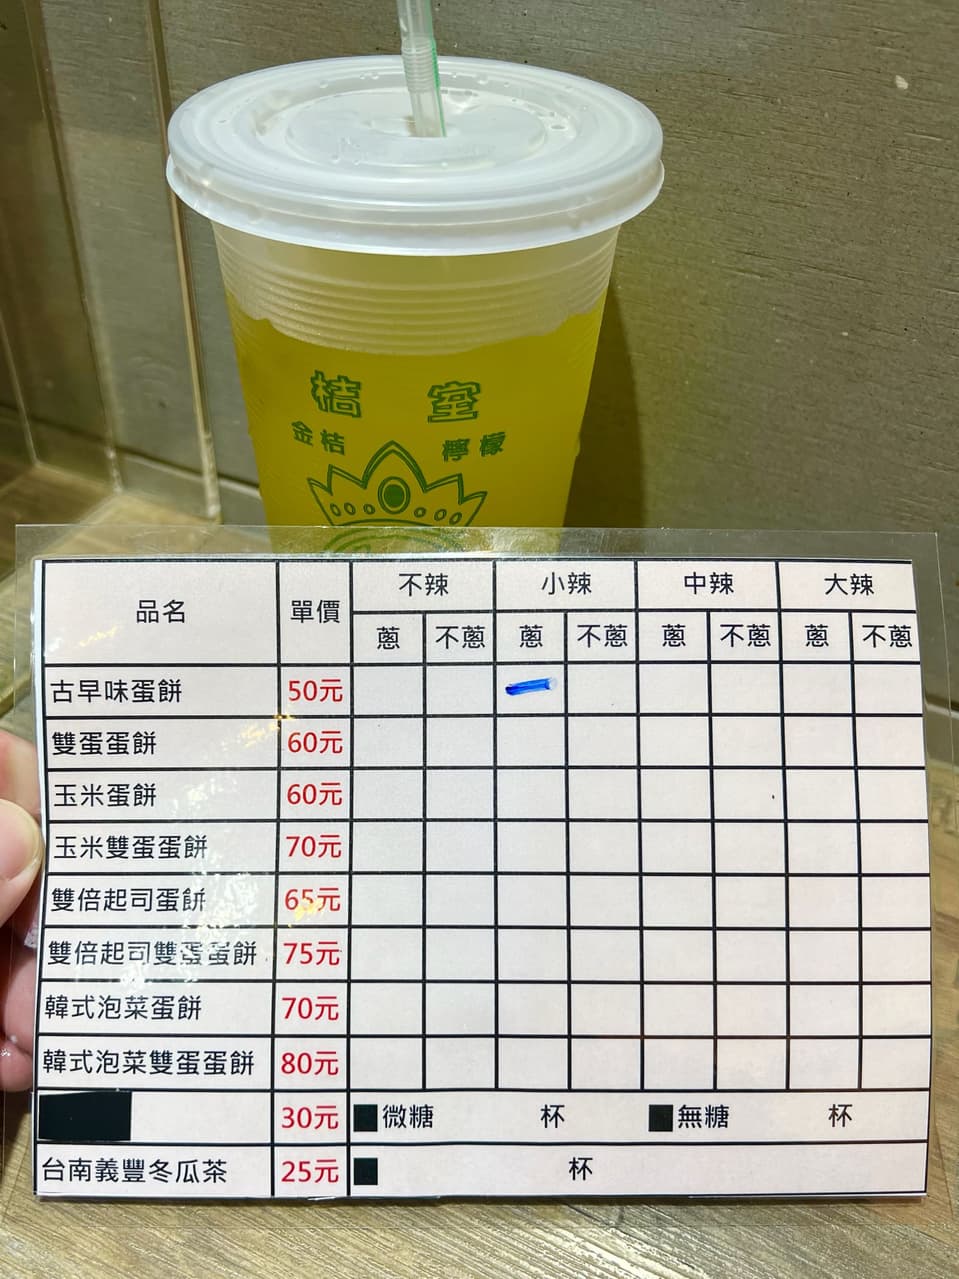 桔 室
金桔 檸檬
品名 單價 不辣 小辣 中辣 大辣
蔥 不蔥 蔥 不蔥 蔥 不蔥 蔥 不蔥
古早味蛋餅 50元
雙蛋蛋餅 60元
玉米蛋餅 60元
玉米雙蛋蛋餅 70元
雙倍起司蛋餅 65元
雙倍起司雙蛋蛋餅 75元
韓式泡菜蛋餅 70元
韓式泡菜雙蛋蛋餅 80元
30元 ■微糖 杯 ■無糖 杯
台南義豐冬瓜茶 25元 ■ 杯